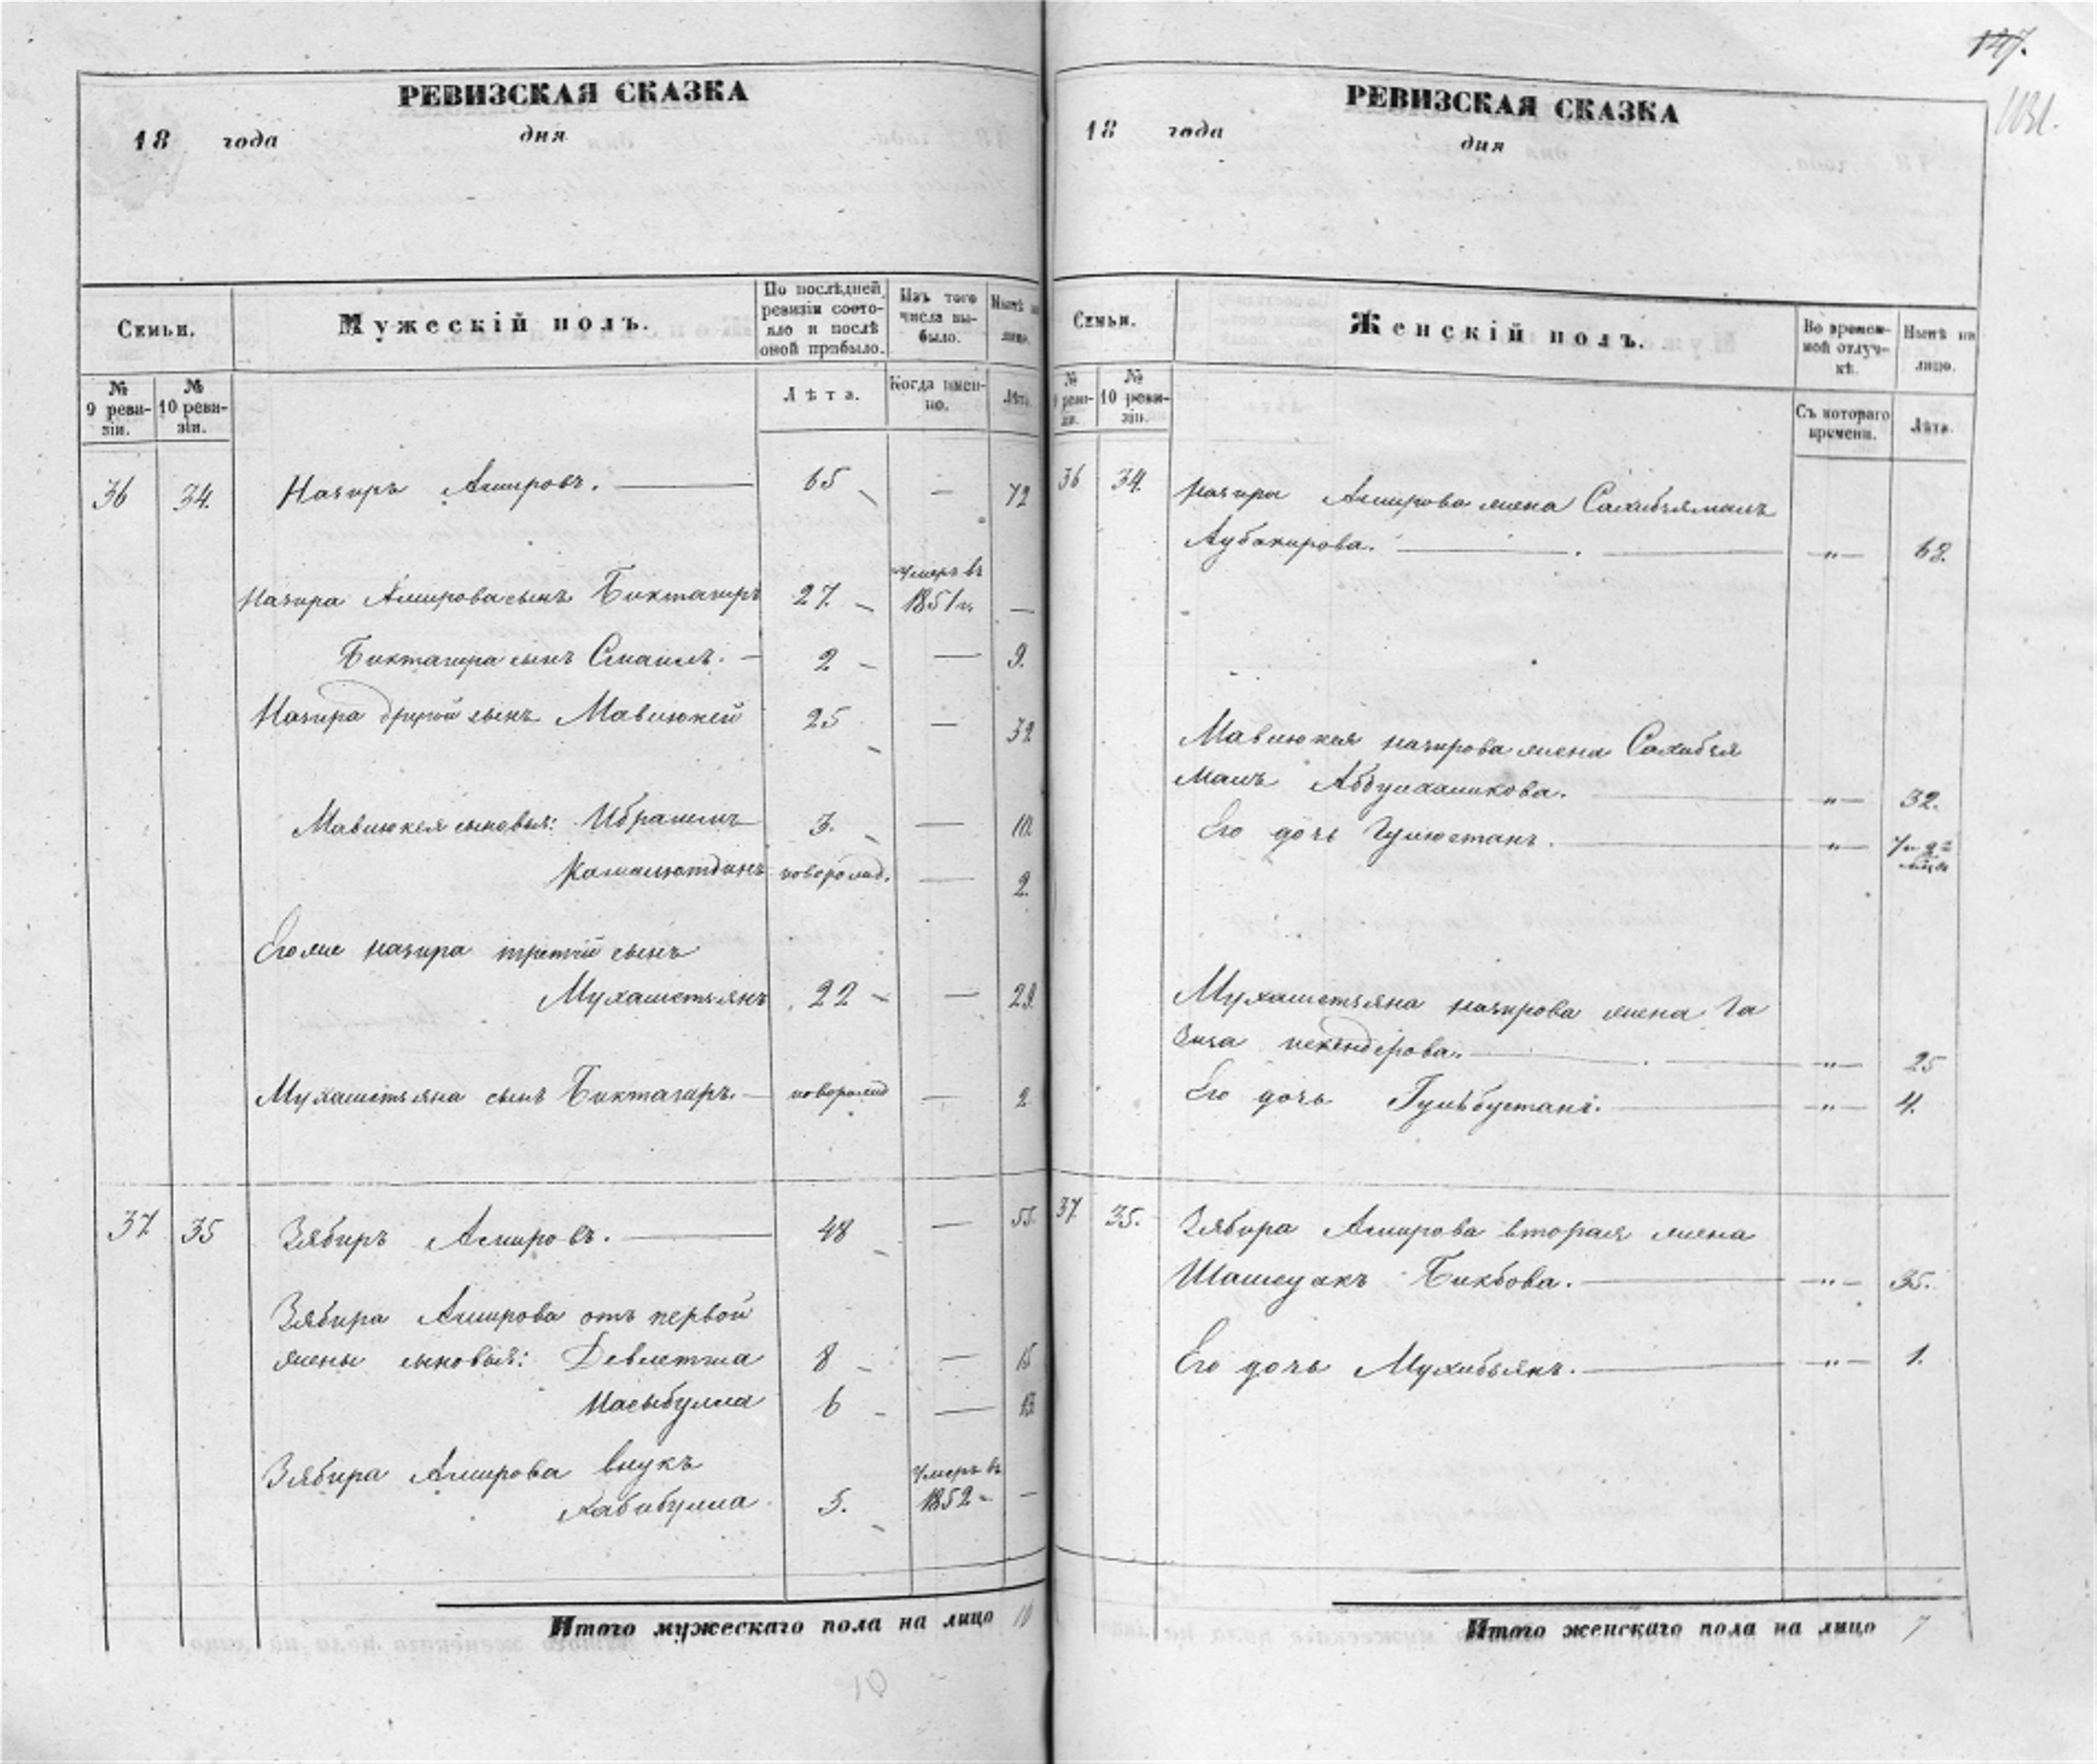 РЕВИЗСКАЯ СКАЗКА
18 года дня
Семьи.
Мужескій полъ.
По послѣдней ревизіи состояло и послѣ оной прибыло.
Изъ того числа выбыло.
Нынѣ на лицо.
№ 9 ревизіи.
№ 10 ревизіи.
Лѣта.
Когда именно.
Лѣта.
36 34. Назиръ Амировъ. 65 — 72
Назира Амирова сынъ Биктагиръ 27. Умеръ въ 1851 г. —
Биктагира сынъ Смаилъ. 2 — 9.
Назира другой сынъ Мавлюкей 25 — 32
Мавлюкея сыновья: Ибрагимъ 3. — 10.
Камалютдинъ новорожд. — 2.
Его же Назира третій сынъ
Мухаметзянъ 22 — 29.
Мухаметзяна сынъ Биктагиръ. новорожд — 2
37 35 Зябиръ Амировъ. 48 — 55.
Зябира Амирова отъ первой
жены сыновья: Девлетша 8 — 15
Насыбулла 6 — 13
Зябира Амирова внукъ
Хабибулла 5. Умеръ въ 1852 —
Итого мужескаго пола на лицо 10
147.
РЕВИЗСКАЯ СКАЗКА
18 года дня
Семьи.
Женскій полъ.
Во временной отлучкѣ.
Нынѣ на лицо.
№ 9 ревизіи.
№ 10 ревизіи.
Съ котораго времени.
Лѣта.
36 34. Назира Амирова жена Сахибзямалъ
Аубакирова. „ — 62.
Мавлюкея Назирова жена Сахибзя
малъ Абдулхаликова. „ — 32.
Его дочь Гулюстанъ. „ —
Мухаметзяна Назирова жена Га
зиза Искендерова. „ — 25
Его дочь Гульбустанъ. „ — 4.
37. 35. Зябира Амирова вторая жена
Шамсуакъ Бикбова. „ — 35.
Его дочь Мухибзянъ. „ — 1.
Итого женскаго пола на лицо 7